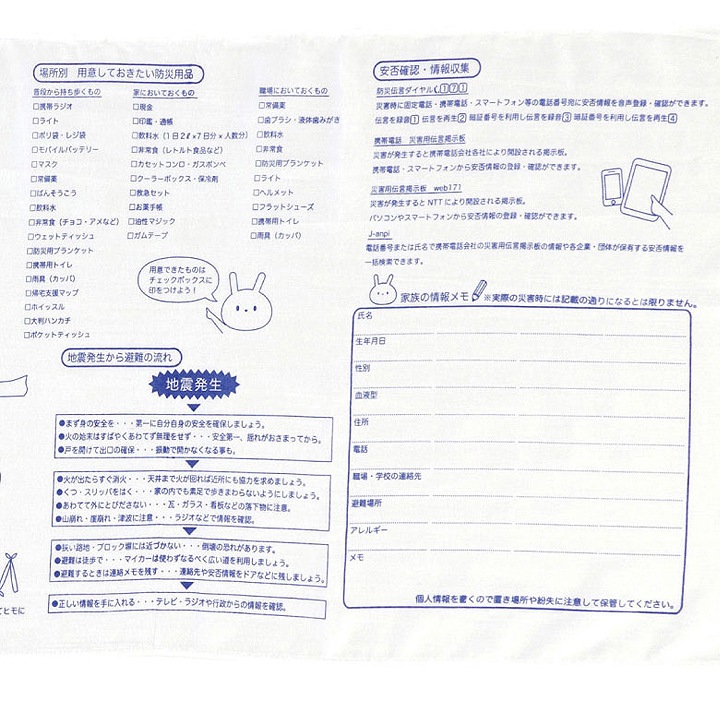 場所別 用意しておきたい防災用品
普段から持ち歩くもの
□携帯ラジオ
□ライト
□ポリ袋・レジ袋
□モバイルバッテリー
□マスク
□常備薬
□ばんそうこう
□飲料水
□非常食（チョコ・アメなど）
□ウェットティッシュ
□防災用ブランケット
□携帯用トイレ
□雨具（カッパ）
□帰宅支援マップ
□ホイッスル
□大判ハンカチ
□ポケットティッシュ
家においておくもの
□現金
□印鑑・通帳
□飲料水（1日2ℓ×7日分×人数分）
□非常食（レトルト食品など）
□カセットコンロ・ガスボンベ
□クーラーボックス・保冷剤
□救急セット
□お薬手帳
□油性マジック
□ガムテープ
職場においておくもの
□常備薬
□歯ブラシ・液体歯みがき
□飲料水
□非常食
□防災用ブランケット
□ライト
□ヘルメット
□フラットシューズ
□携帯用トイレ
□雨具（カッパ）
用意できたものは
チェックボックスに
印をつけよう！
地震発生から避難の流れ
地震発生
●まず身の安全を・・・第一に自分自身の安全を確保しましょう。
●火の始末はすばやくあわてず無理をせず・・・安全第一、揺れがおさまってから。
●戸を開けて出口の確保・・・振動で開かなくなる事も。
●火が出たらすぐ消火・・・天井まで火が回れば近所にも協力を求めましょう。
●くつ・スリッパをはく・・・家の内でも素足で歩きまわらないようにしましょう。
●あわてて外にとびださない・・・瓦・ガラス・看板などの落下物に注意。
●山崩れ・崖崩れ・津波に注意・・・ラジオなどで情報を確認。
●狭い路地・ブロック塀には近づかない・・・倒壊の恐れがあります。
●避難は徒歩で・・・マイカーは使わずなるべく広い道を利用しましょう。
●避難するときは連絡メモを残す・・・連絡先や安否情報をドアなどに残しましょう。
●正しい情報を手に入れる・・・テレビ・ラジオや行政からの情報を確認。
てヒモに
安否確認・情報収集
防災伝言ダイヤル 1 7 1
災害時に固定電話・携帯電話・スマートフォン等の電話番号宛に安否情報を音声登録・確認ができます。
伝言を録音1 伝言を再生2 暗証番号を利用し伝言を録音3 暗証番号を利用し伝言を再生4
携帯電話 災害用伝言掲示板
災害が発生すると携帯電話会社各社により開設される掲示板。
携帯電話・スマートフォンから安否情報の登録・確認ができます。
災害用伝言掲示板 web171
災害が発生すると NTT により開設される掲示板。
パソコンやスマートフォンから安否情報の登録・確認ができます。
J-anpi
電話番号または氏名で携帯電話会社の災害用伝言掲示板の情報や各企業・団体が保有する安否情報を
一括検索できます。
家族の情報メモ ※実際の災害時には記載の通りになるとは限りません。
氏名
生年月日
性別
血液型
住所
電話
職場・学校の連絡先
避難場所
アレルギー
メモ
個人情報を書くので置き場所や紛失に注意して保管してください。